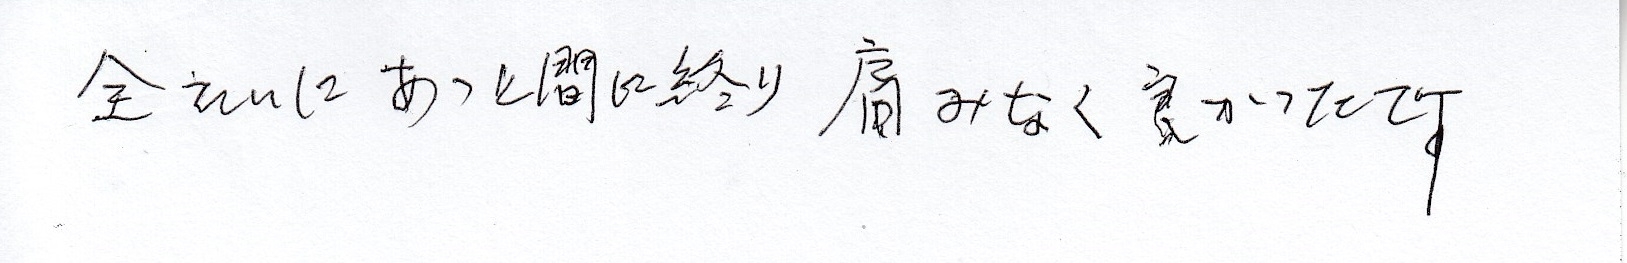 全たいにあっと間に終り 痛みなく良かったです